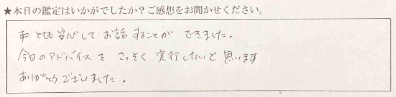 ★本日の鑑定はいかがでしたか?ご感想をお聞かせください。
とても安心して お話することが できました.
今日のアドバイスを さっそく 実行したいと思います
ありがとうございました.